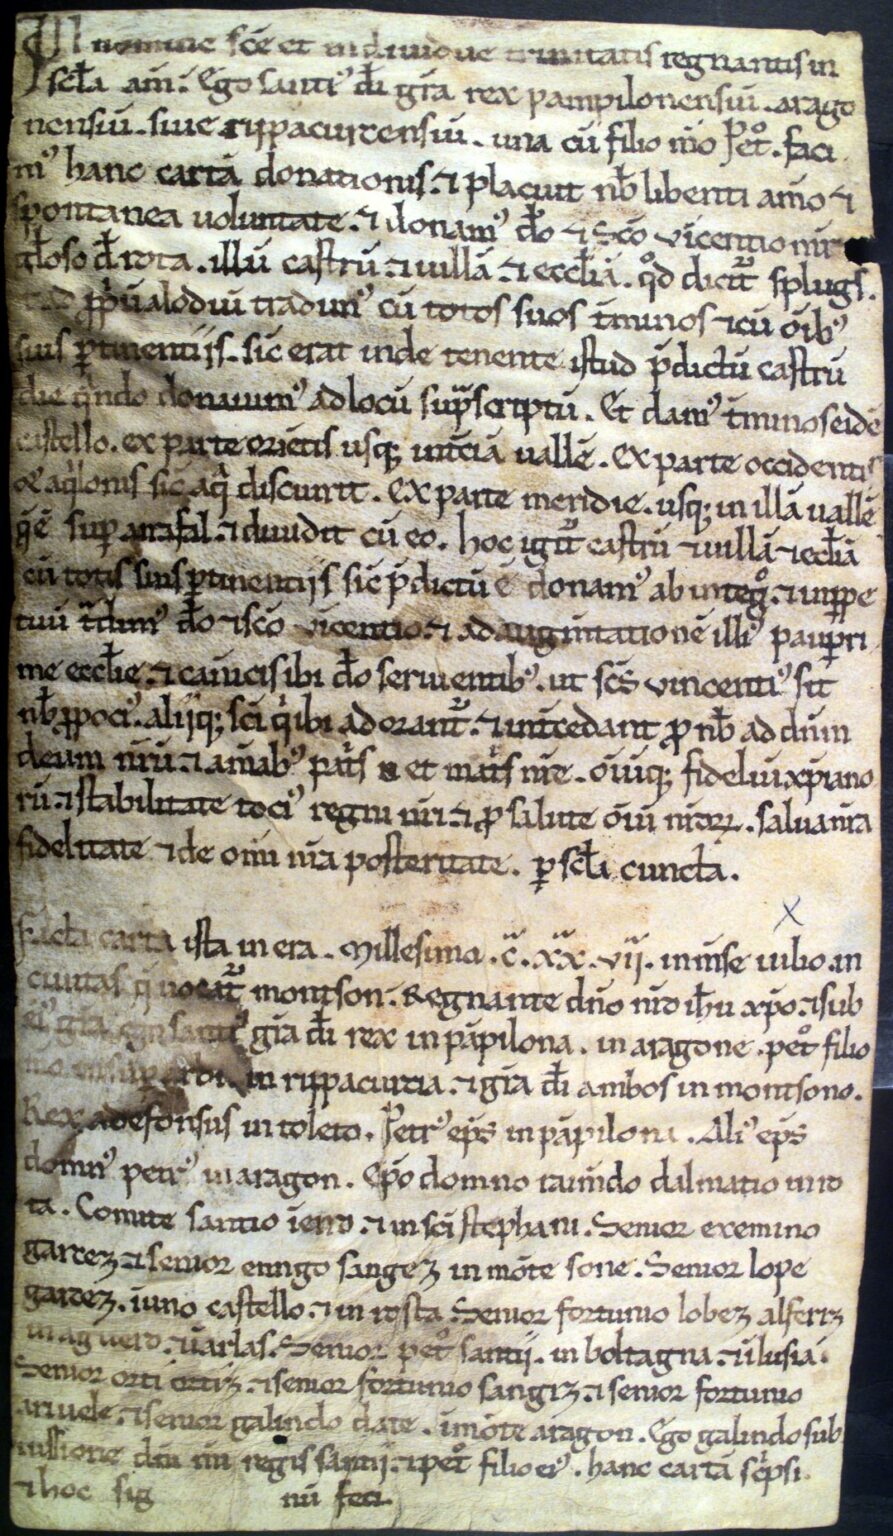 In nomine sc̄e et individue trinitatis regnantis in
sc̄la am̄. Ego santi᾽ d̄i gr̄a rex pampilonensiū. arago
nensiū. sive ripacurcensiū. una cū filio m̄o Pet᷒. faci
m᾽ hanc cartā donationis. ⁊ placuit nb̄ libenti am̄o ⁊
spontanea voluntate. ⁊ donam᾽ d̄o ⁊ Sc̄o vicentio mr̄
gl̄oso d̄ rota. illū castrū ⁊ villā ⁊ eccl̄iā. qd̄ dicit᷑ splugs.
alodiū tradim᾽ cū totos suos t̄minos ⁊ cū oīb᾽
suis p̱tinentiis. sic̄ erat inde tenente istud p̄dictū castrū
die qn̄do donavim᾽ ad locū sup̱scriptū. Et dam᾽ t̄minos eidē
castello. ex parte oriētis usq; vallē. Ex parte occidentis
aq̄lonis sic̄ aq̄ discurrit. Ex parte meridie. usq; in illā vallē
q̄ ē sup̱ ⁊ dividit cū eo. hoc igit᷑ castrū ⁊ villā ⁊ ecl̄iā
cū totis suis p̱tinentiis sic̄ p̄dictū ē donam᾽ ab integ᷒. ⁊ inp̱pe
tuū t̄dim᾽ d̄o ⁊ sc̄o vicentio. ⁊ ad augm̄tationē illi᾽ paup̱ri
me eccl̄ie. ⁊ canicis ibi d̄o servientib᾽. ut sc̄s vincenti᾽ sit
nb̄ p̱poci᾽. aliiq; sc̄i q̄ ibi adorant᷑. ⁊ int̄cedant ꝓ nb̄ ad dn̄m
deum nr̄ū ⁊ am̄ab᾽ pat̄s et mat̄s m̄e. oīūq; fideliū xp̄iano
rū ⁊ stabilitate toci᾽ regni nr̄i. ⁊ ꝓ salute oīū nr̄orꝝ. salva nr̄a
fidelitate ⁊ de om̄i nr̄a posteritate. p̱ sc̄la cuncta.
Facta carta ista in era. Millesima. c̄. xx. vii. in m̄se iulio. in
civitas q̄ vocat᷑ montson. Regnante dn̄o nr̄o ih̄u xp̄o. ⁊ sub
ei᾽ gr̄a ego santi᾽ gr̄a d̄i rex in pāpilona. in aragone. pet᷒ filio
m̄o in ripacurcia. ⁊ gr̄a d̄i ambos in montsono.
Rex adefonsus in toleto. Petr᾽ ep̄s in pāpilona. Ali᾽ ep̄s
domn᾽ petr᾽ in aragon. Ep̄o domno raim̄do dalmatio in ro
ta. Comite santio ⁊ in sc̄i stephani. Senior exemino
garcez. ⁊ senior enngo sangez in mōte sone. Senior lope
garcez. i uno castello. ⁊ in Senior fortunio lobez alferiz
in aguero. Senior pet᷒ santii. in boltagna.
Senior orti ortiz. ⁊ senior fortunio sangiz. ⁊ senior fortunio
⁊ senior galindo date. i mōte aragon. Ego galindo sub
iussione dn̄i m̄i regis santii. ⁊ pet᷒ filio ei᾽. hanc cartā sc̄psi.
⁊ hoc sig nū feci.